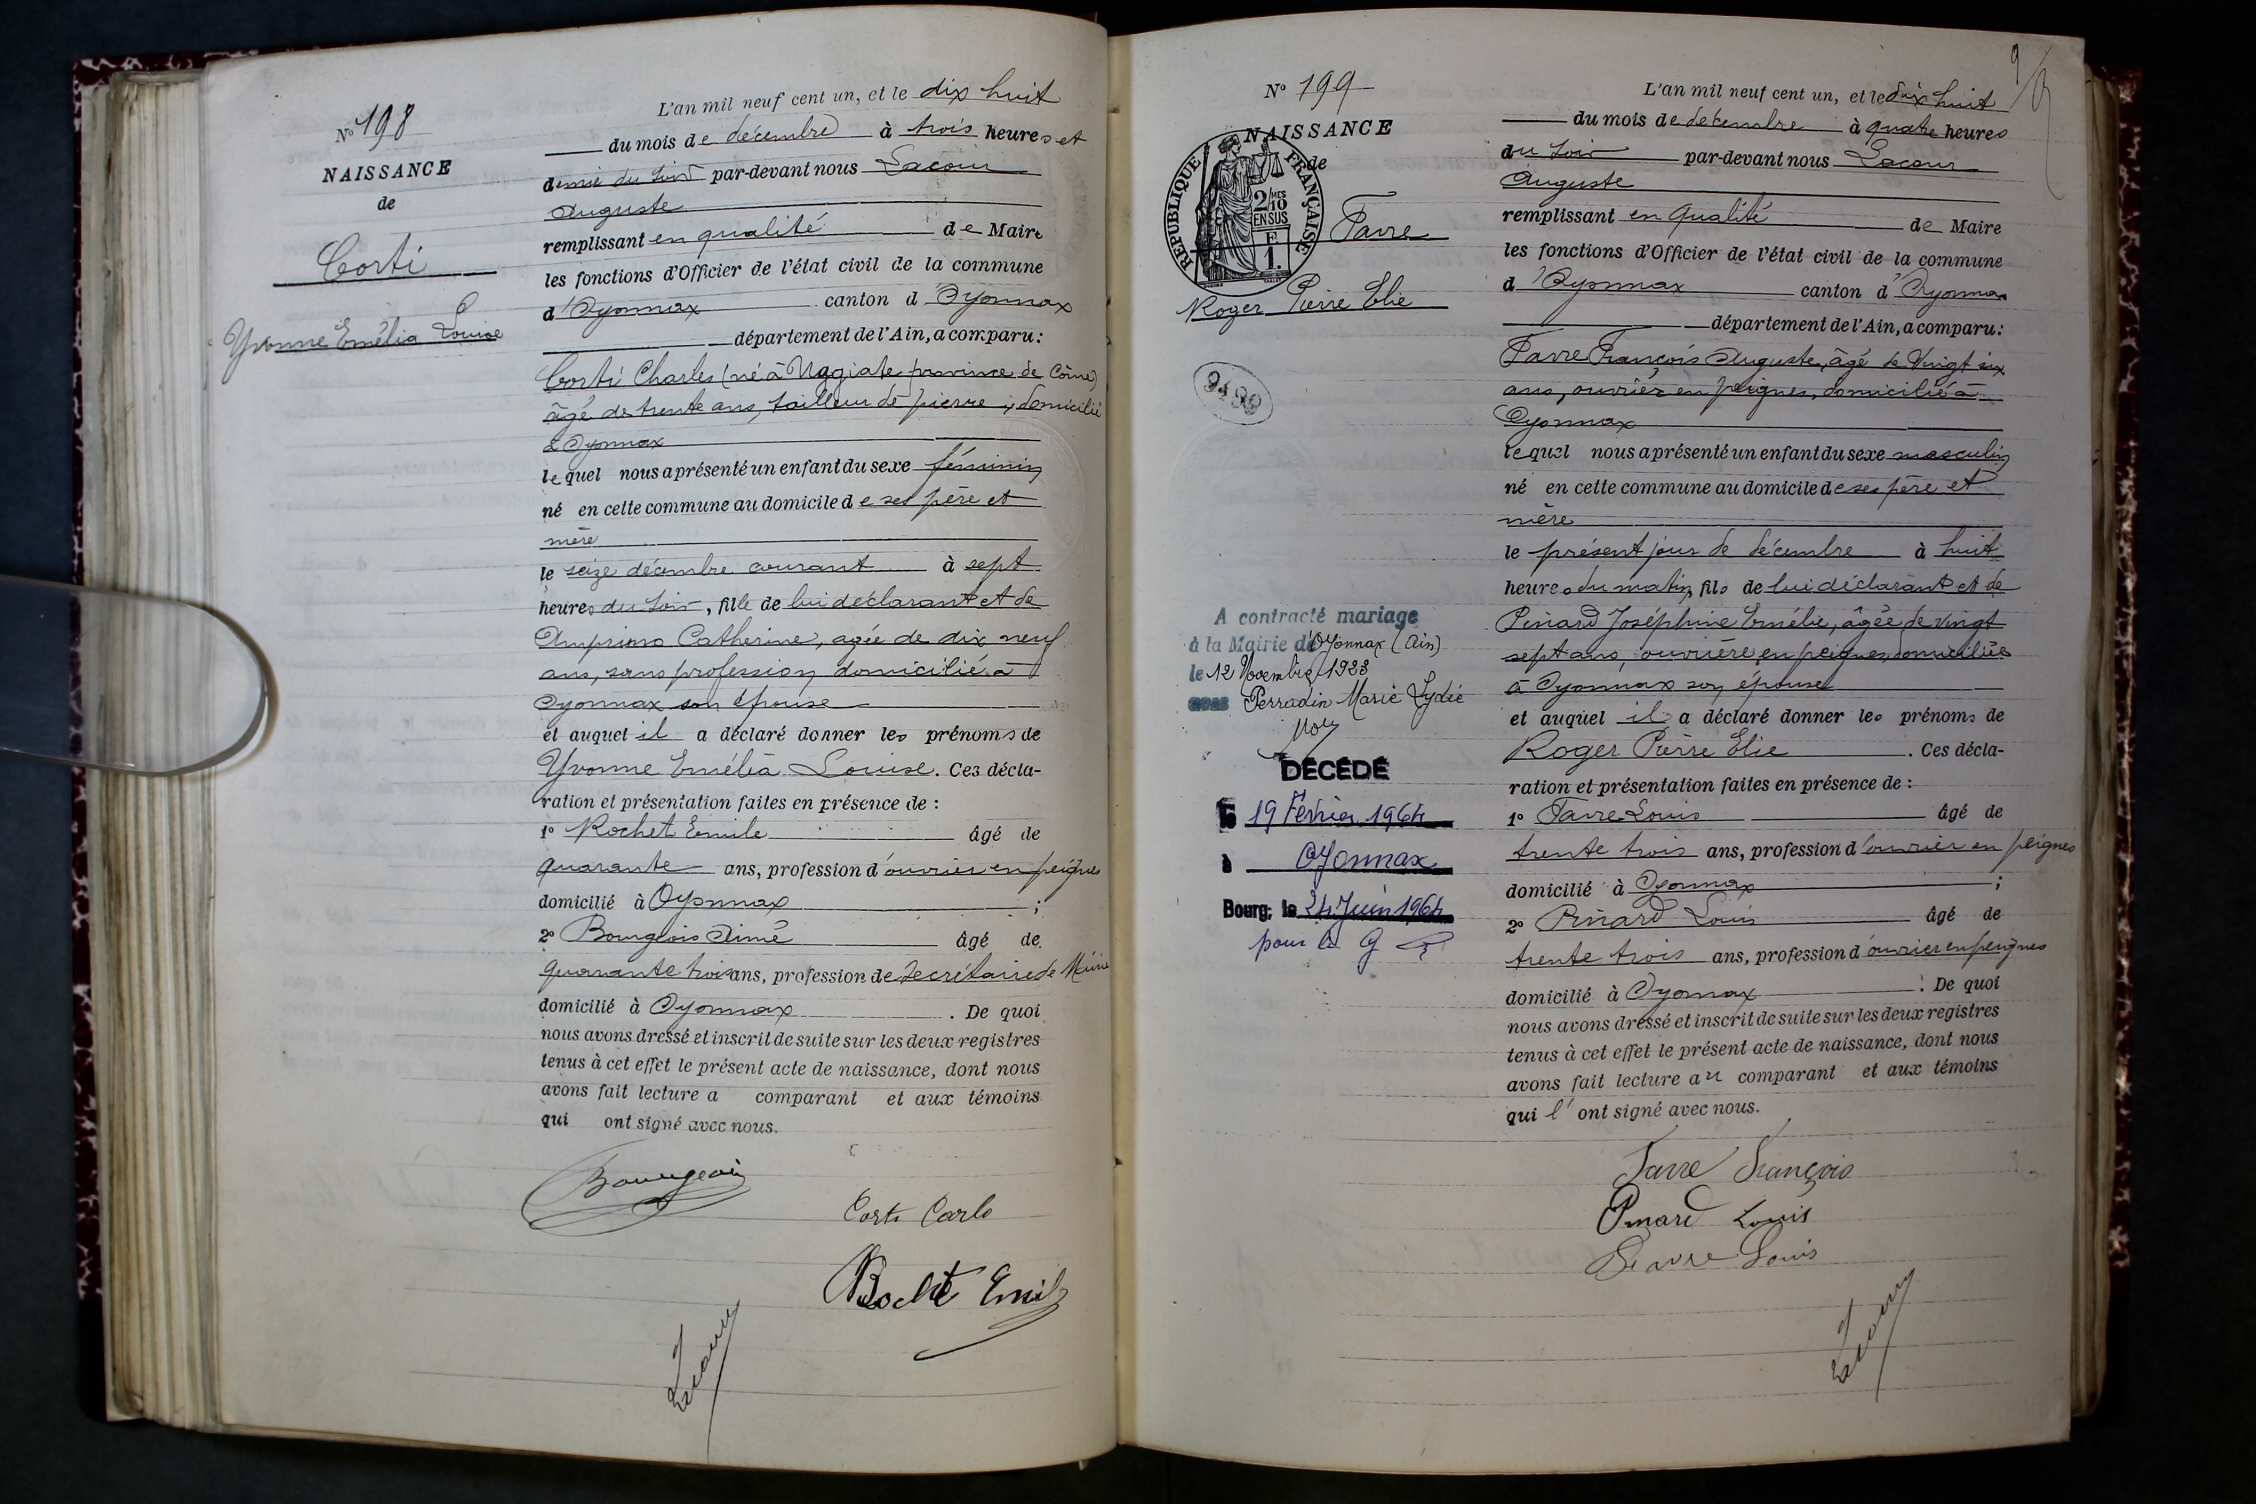 No 198
NAISSANCE
de
Corti
Yvonne Emélia Louise
L'an mil neuf cent un, et le dix huit
du mois de décembre à trois heures et
demie du soir par-devant nous Lacour
Auguste
remplissant en qualité de Maire
les fonctions d'Officier de l'état civil de la commune
d'Oyonnax canton d'Oyonnax
département de l'Ain, a comparu:
Corti Charles (né à Uggiate province de Côme)
âgé de trente ans, tailleur de pierre, domicilié
à Oyonnax
lequel nous a présenté un enfant du sexe féminin
né en cette commune au domicile de ses père et
mère
le seize décembre courant à sept
heures du soir, fille de lui déclarant et de
Catherine, agée de dix neuf
ans, sans profession domicilié à
Oyonnax son épouse
et auquel il a déclaré donner les prénoms de
Yvonne Emélia Louise. Ces décla-
ration et présentation faites en présence de :
1o Rochet Emile âgé de
quarante ans, profession d'ouvrier en peignes
domicilié à Oyonnax ;
2o Bourgeois Aimé âgé de
quarante trois ans, profession de Secrétaire de Mairie
domicilié à Oyonnax. De quoi
nous avons dressé et inscrit de suite sur les deux registres
tenus à cet effet le présent acte de naissance, dont nous
avons fait lecture a comparant et aux témoins
qui ont signé avec nous.
Bourgeois
Corti Carlo
Rochet Emile
Lacour
9
No 199
NAISSANCE
de
REPUBLIQUE FRANÇAISE
2/10 MES
EN SUS
F
1.
Favre
Roger Pierre Elie
A contracté mariage
à la Mairie d'Oyonnax (Ain)
le 12 Novembre 1923
avec Perradin Marie Lydie
DÉCÉDÉ
le 19 Février 1964
à Oyonnax
Bourg, le 24 Juin 1964
pour le G
L'an mil neuf cent un, et le dix huit
du mois de décembre à quatre heures
du soir par-devant nous Lacour
Auguste
remplissant en qualité de Maire
les fonctions d'Officier de l'état civil de la commune
d'Oyonnax canton d'Oyonnax
département de l'Ain, a comparu:
Favre François Auguste, âgé de vingt six
ans, ouvrier en peignes, domicilié à
Oyonnax
lequel nous a présenté un enfant du sexe masculin
né en cette commune au domicile de ses père et
mère
le présent jour de décembre à huit
heures du matin, fils de lui déclarant et de
Pinard Joséphine Emélie, âgée de vingt
sept ans, ouvrière en peignes, domiciliée
à Oyonnax son épouse
et auquel il a déclaré donner les prénoms de
Roger Pierre Elie. Ces décla-
ration et présentation faites en présence de :
1o Favre Louis âgé de
trente trois ans, profession d'ouvrier en peignes
domicilié à Oyonnax ;
2o Pinard Louis âgé de
trente trois ans, profession d'ouvrier en peignes
domicilié à Oyonnax : De quoi
nous avons dressé et inscrit de suite sur les deux registres
tenus à cet effet le présent acte de naissance, dont nous
avons fait lecture au comparant et aux témoins
qui l'ont signé avec nous.
Favre François
Pinard Louis
Favre Louis
Lacour